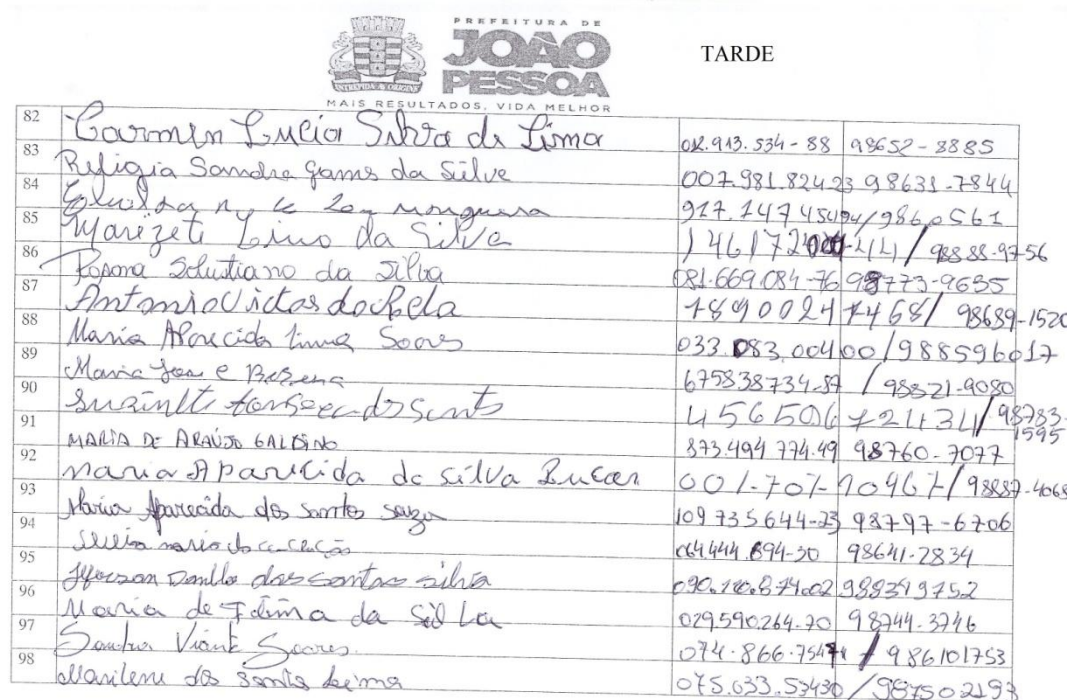 PREFEITURA DE
JOÃO
PESSOA
MAIS RESULTADOS, VIDA MELHOR
TARDE
82 Carmen Lucia Silva de Lima 012.913.534-88 98652-8885
83 Religia Sandra Gams da Silve 007.981.824.23 98631-7844
84 917.147 45494/9860561
85 Marizeti Lino da Silva 98888-9756
86 Rosana Solustiano da Silva 081.669.084-76 98773-9635
87 Antonio Victor do Rela 78900247468/ 98689-1520
88 Maria Aparecida Lima Soares 033.083.00400/988596017
89 Maria Jose Bezerra 675838734-87 / 98821-9080
90 45650672434/98783-1595
91 MARIA DE ARAÚJO GALDINO 873.494 774.49 98760-7077
92 Maria Aparecida da silva Lucas 001-701-10467/98887-4068
93 Maria Aparecida dos santos souza 109 735644-23 98797-6706
94 maria da conceição 064444.894-30 98641-2834
95 Jefferson Danillo dos santos silva 090.120.874.02 988349752
96 Maria de Fatima da Silva 029.590.264-70 98744-3746
97 Sandra Viant Soares 074.866.75474 / 986101753
98 Marilene dos Santos Leima 075.633.53430 / 987502197